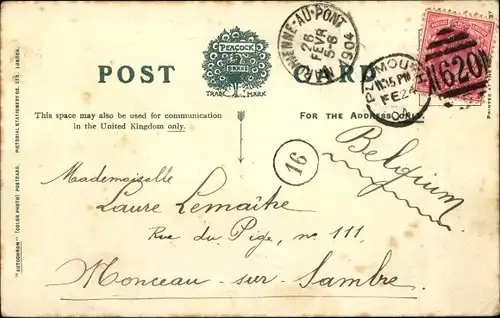 PEACOCK
BRAND
TRADE MARK
POST CARD
This space may also be used for communication
in the United Kingdom only.
FOR THE ADDRESS ONLY.
"AUTOCHROM" (COLOR PHOTO) POSTCARD.
PICTORIAL STATIONERY CO. LTD. LONDON.
MARCHIENNE-AU-PONT
26
FEVR
5-6
1904
PLYMOUTH
FE 24
04
620
16
Belgium
Mademoiselle
Laure Lemaître
Rue du Pige, no 111,
Monceau-sur-Sambre.